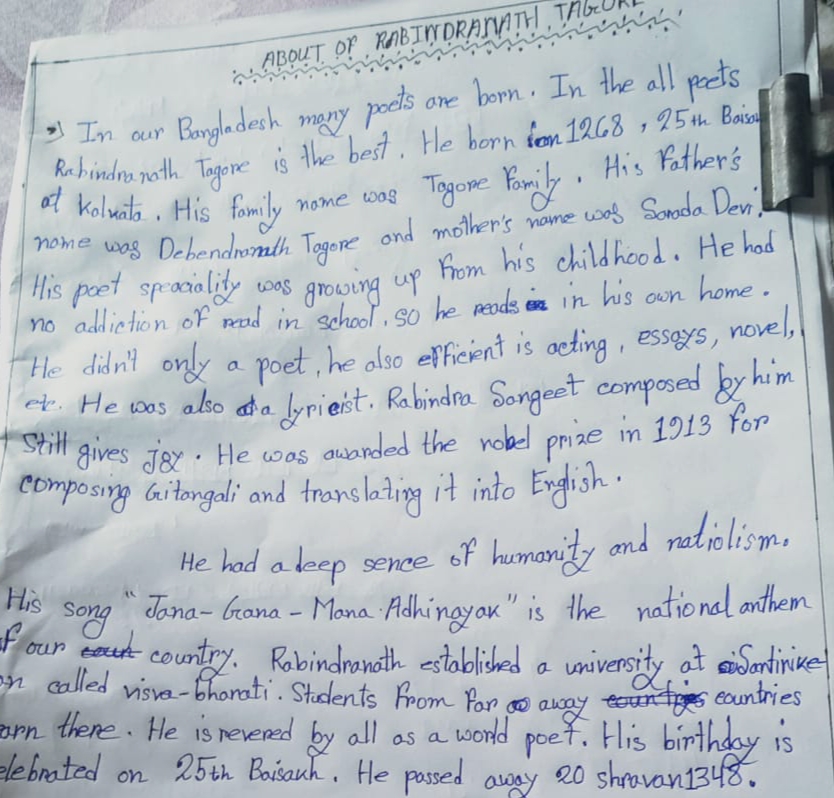 ABOUT OF RABINDRANATH TAGORE
In our Bangladesh many poets are born. In the all poets
Rabindranath Tagore is the best. He born on 1268, 25th Baisa
at Kolkata. His family name was Tagore Family. His Father's
name was Debendranath Tagore and mother's name was Sarada Devi.
His poet speaciality was growing up From his childhood. He had
no addiction of read in school, so he reads in his own home.
He didn't only a poet, he also efficient is acting, essays, novel,
etc. He was also a lyricist. Rabindra Sangeet composed by him
Still gives joy. He was awarded the nobel prize in 1913 for
composing Gitangali and translating it into English.
He had a deep sence of humanity and natiolism.
His song "Jana-Gana-Mana Adhinayak" is the national anthem
f our country. Rabindranath established a university at Santinike
on called visva-bharati. Students From Far away countries
arn there. He is revered by all as a world poet. His birthday is
elebrated on 25th Baisakh. He passed away 20 shravan 1348.